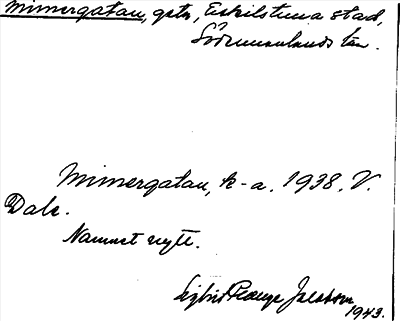 Mimergatan, gata, Eskilstuna stad,
Södermanlands län.
Mimergatan, k-a. 1938. V.
Dale.
Namnet nytt.
Jacobson
1943.